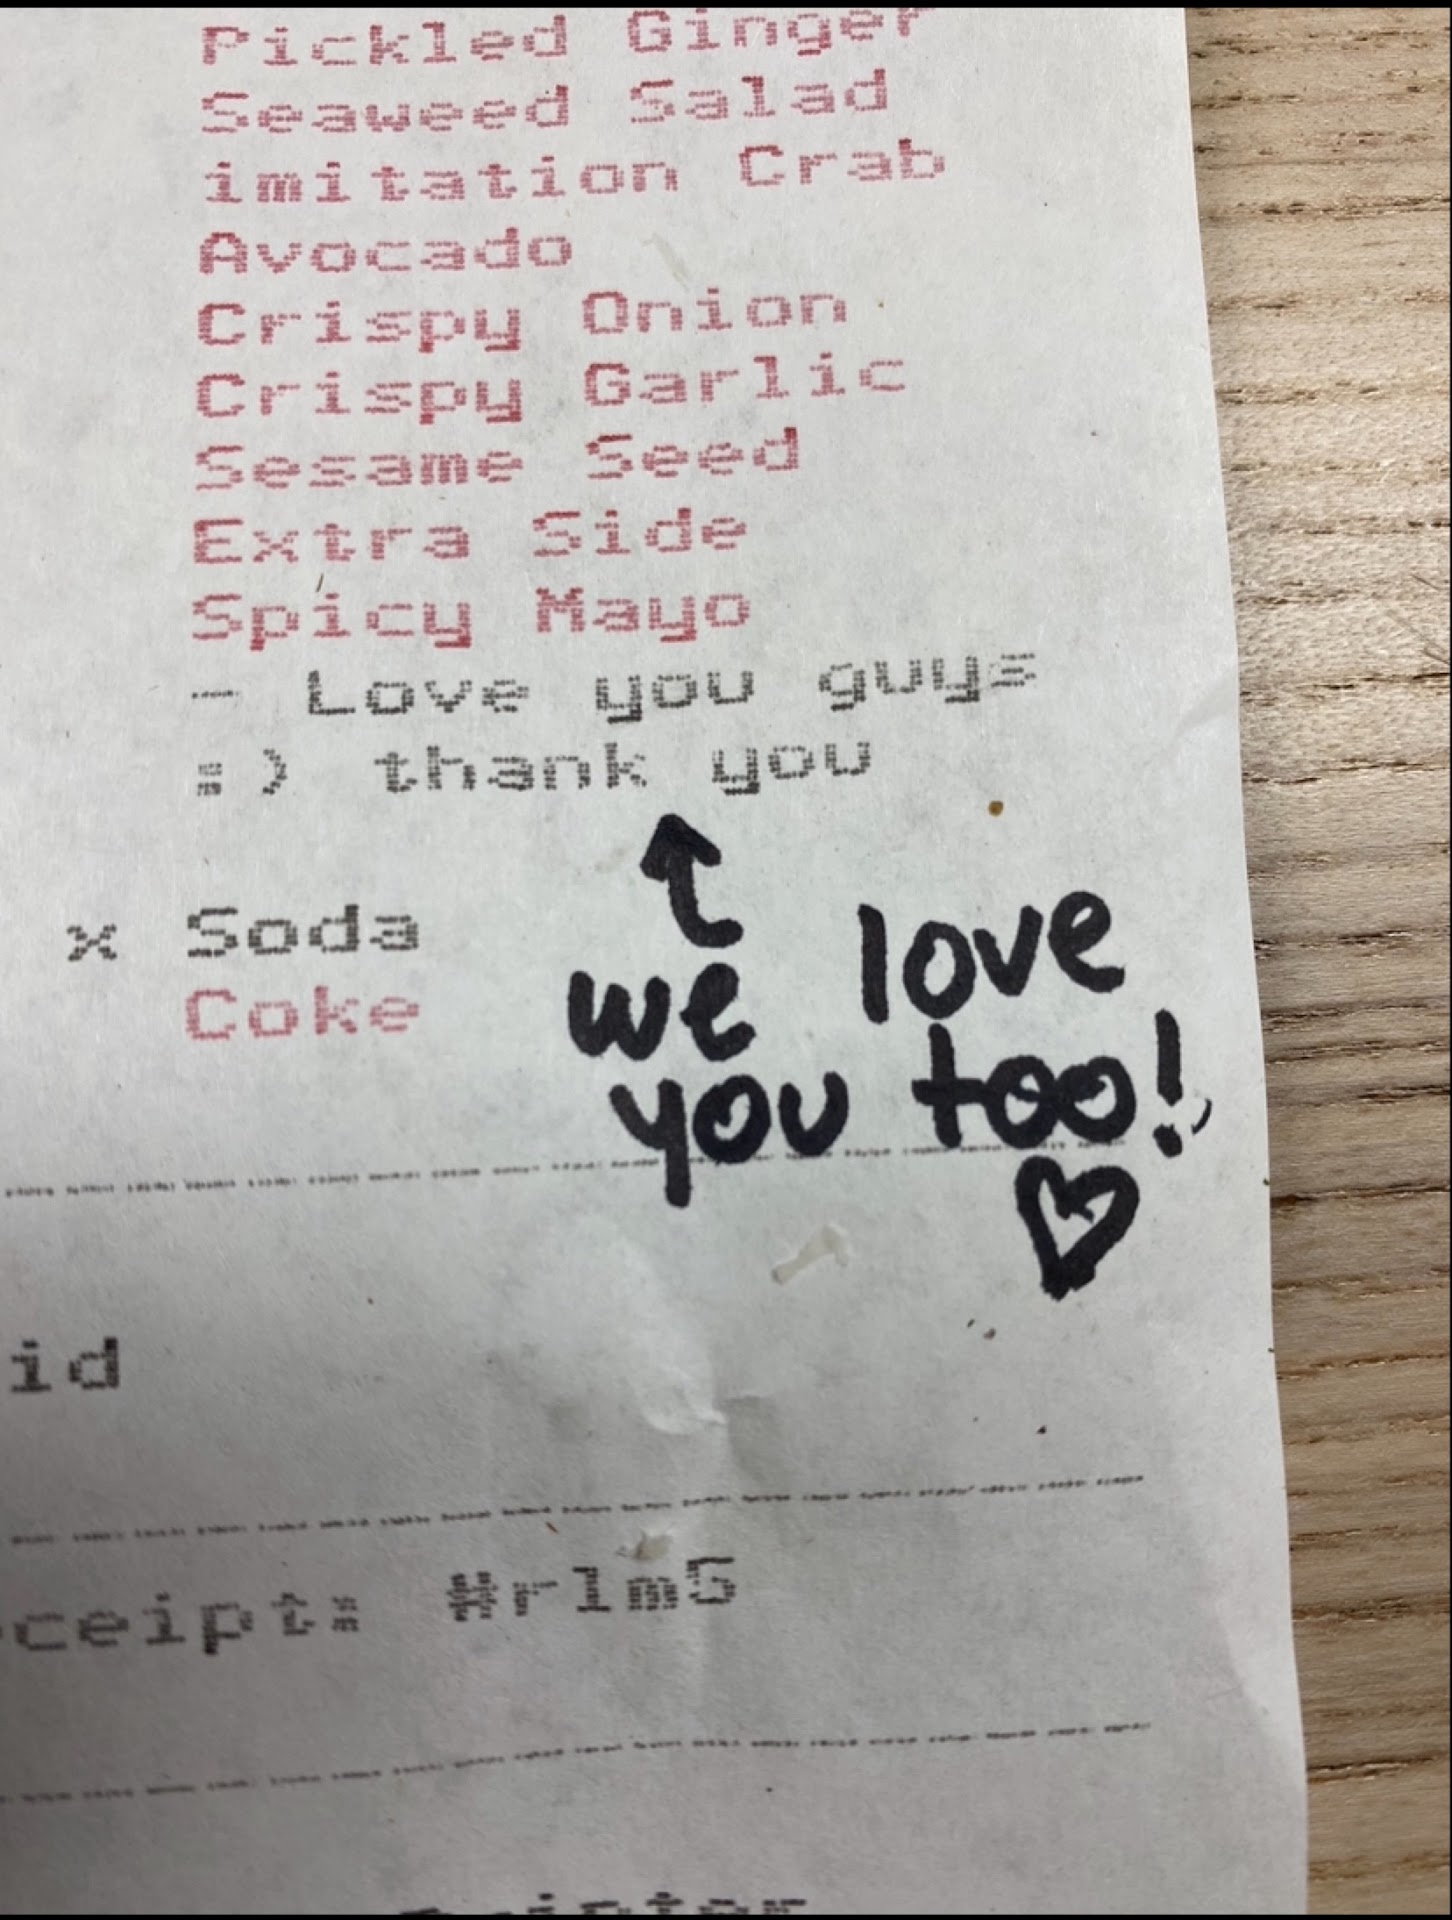 Pickled Ginger
Seaweed Salad
imitation Crab
Avocado
Crispy Onion
Crispy Garlic
Sesame Seed
Extra Side
Spicy Mayo
- Love you guys
:) thank you
x Soda
Coke
we love
you too!
id
ceipt: #r1m5